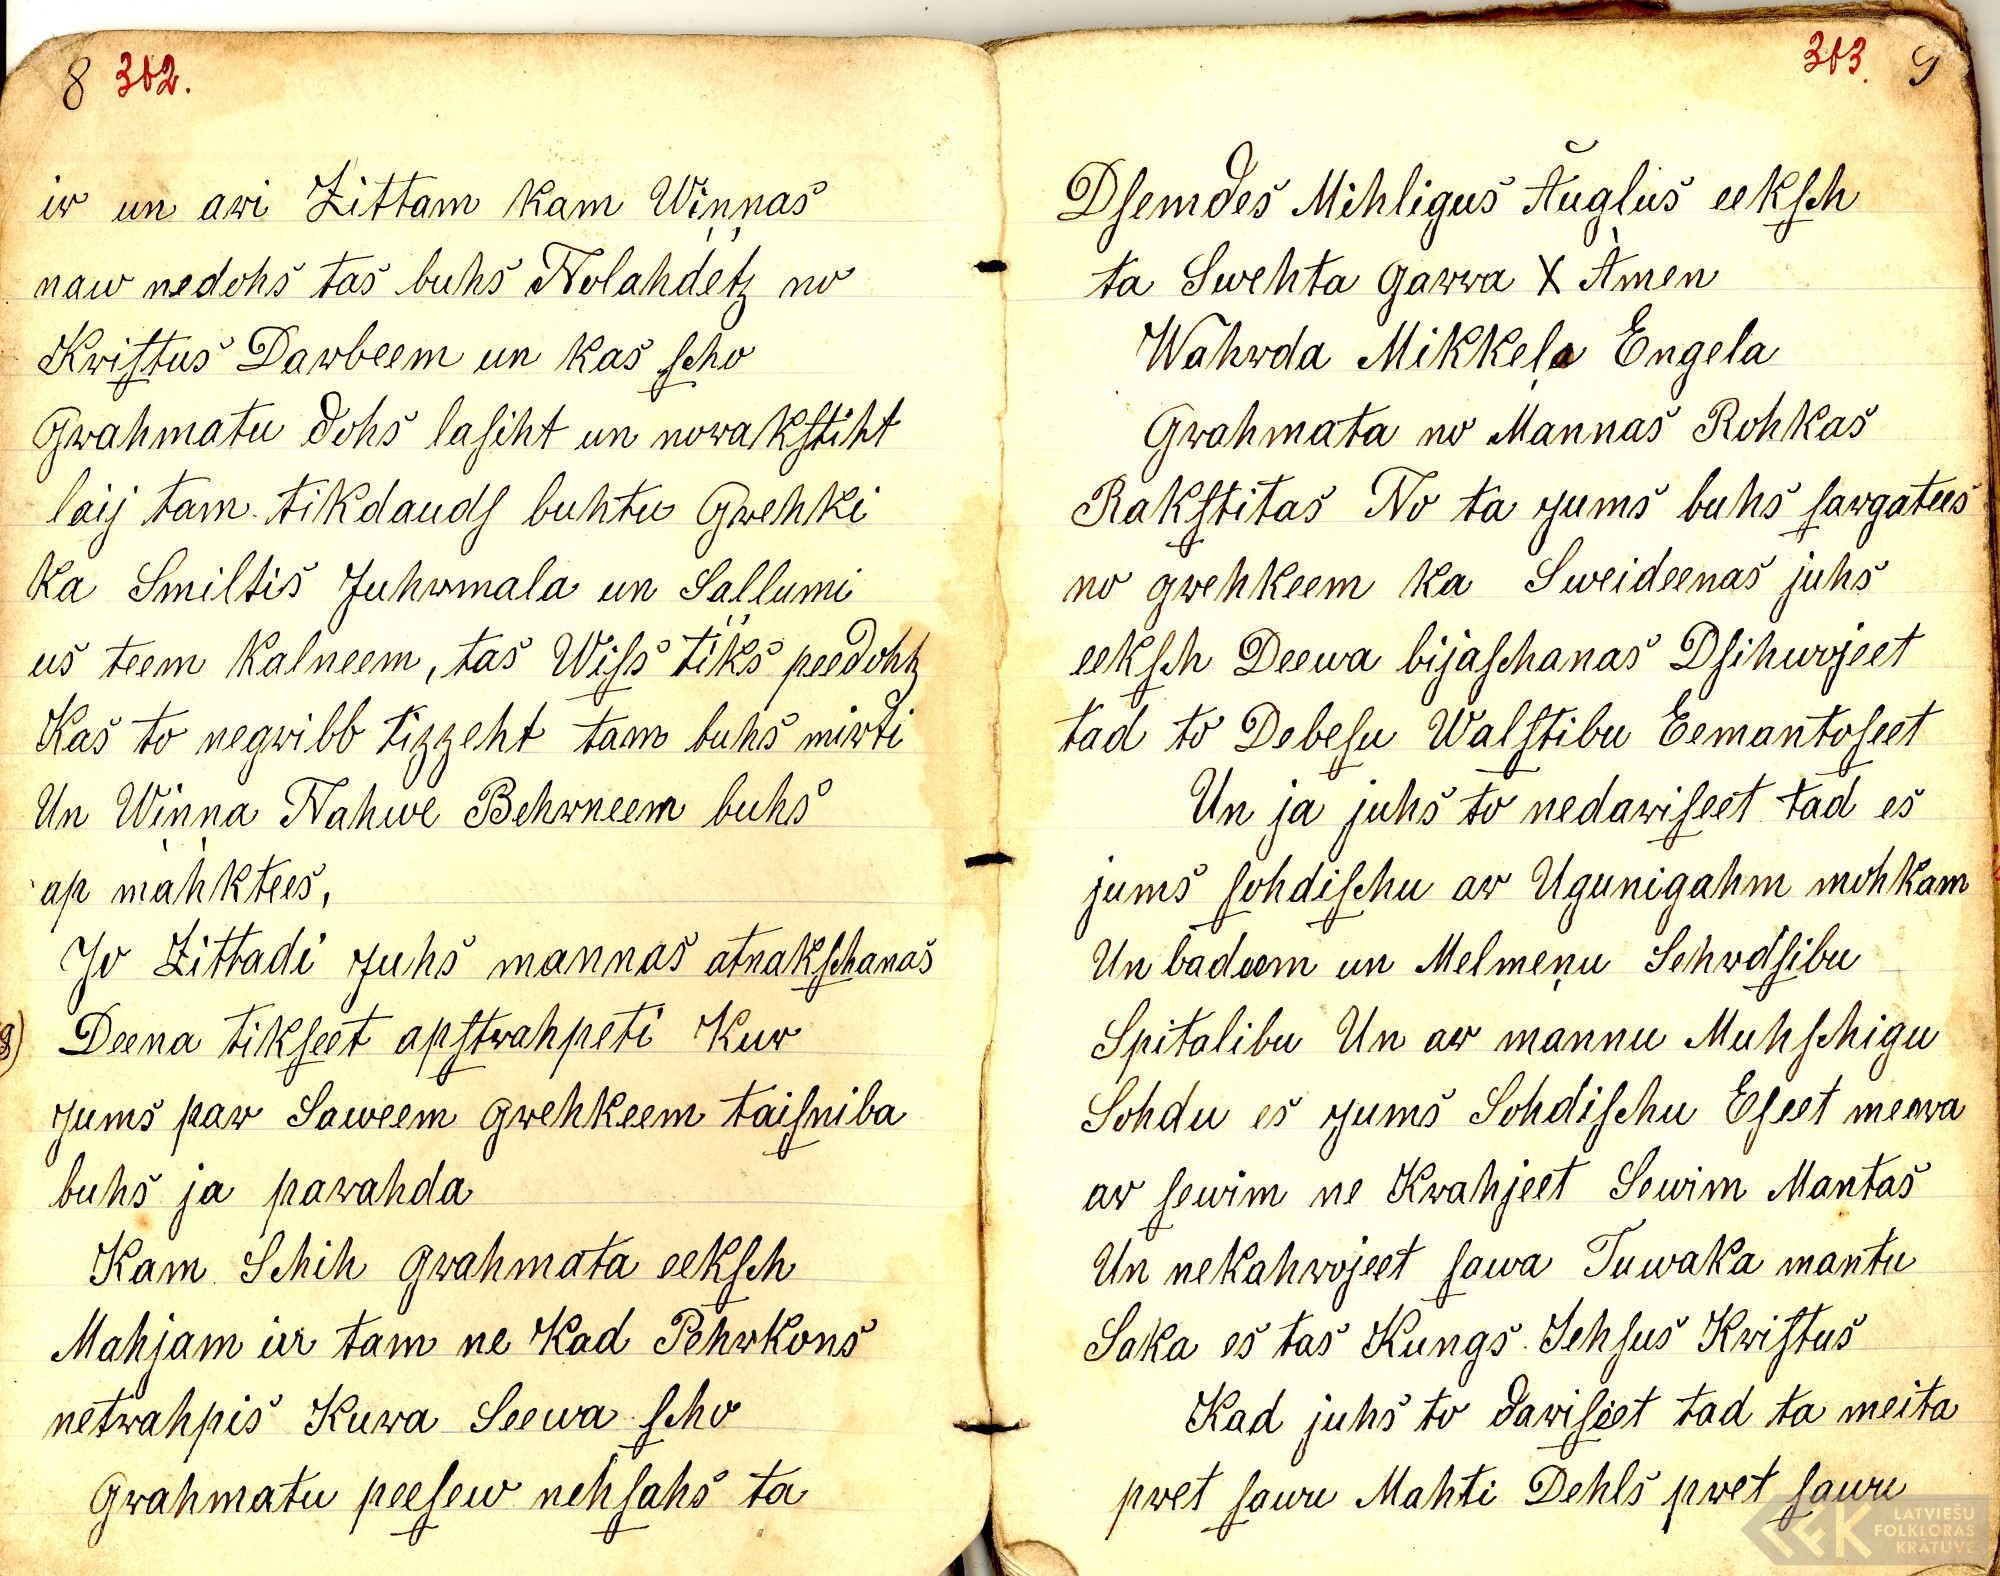 8 362.
ir un ari Zittam kam Wiņņas
naw nedohs tas buhs Nolahdetz no
Kriſtus Darbeem un kas ſcho
Grahmatu dohs laſiht un norakſtiht
laij tam tikdaudſ buhtu Grehki
ka Smiltis Juhrmala un Sallumi
us teem kalneem, tas Wiſs tiks peedohtz
Kas to negribb tizzeht tam buhs mirti
Un Winna Nahwe Behrneem buhs
ap mahktees,
Jo Zittadi Juhs mannas atnakſchanas
Deena tikſeet apſtrahpeti Kur
Jums par Saweem grehkeem taiſniba
buhs ja parahda
Kam Schih grahmata eekſch
Mahjam ir tam ne Kad Pehrkons
netrahpis Kura Seewa ſcho
Grahmatu peeſew nehſahs ta
363. 9
Dſemdes Mihligus Auglus eekſch
ta Swehta garra X Amen
Wahrda Mikkeļa Engela
Grahmata no Mannas Rohkas
Rakſtitas No ta Jums buhs ſargatees
no grehkeem ka Sweideenas juhs
eekſch Deewa bijaſchanas Dſihwojeet
tad to Debeſu Walſtibu Eemantoſeet
Un ja juhs to nedariſeet tad es
jums ſohdiſchu ar Ugunigahm mohkam
Un badeem un Melmeņu Sehrdſibu
Spitalibu Un ar mannu Muhſchigu
Sohdu es Jums Sohdiſchu Eſeet meera
ar ſewim ne Krahjeet Sewim Mantas
Un nekahrojeet ſawa Tuwaka mantu
Saka es tas Kungs Jehſus Kriſtus
Kad juhs to dariſeet tad ta meita
pret ſawu Mahti Dehls pret ſawu
LATVIEŠU
FOLKLORAS
KRĀTUVE